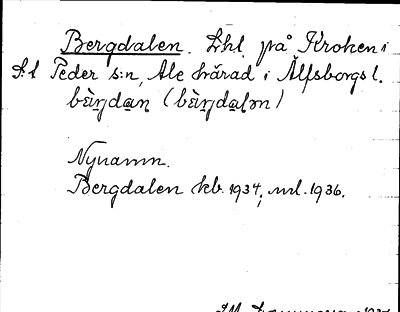 Bergdalen. Lhl. på Kroken i
S:t Peder s:n, Ale härad i Älfsborgs l.
bèŋdaṉ (bèŋdaḻən)
Nynamn.
Bergdalen kb. 1934; ml. 1936.